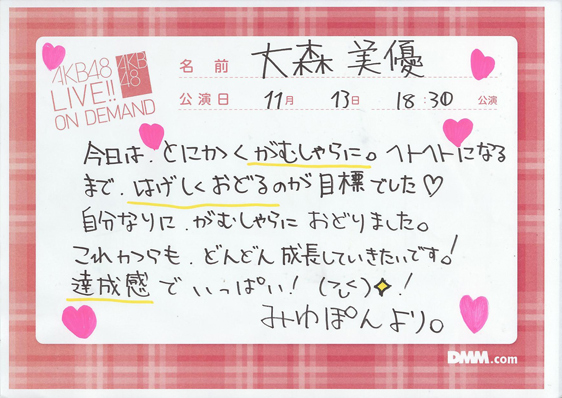 AKB48
LIVE!!
ON DEMAND
AKB
48
名前 大森美優
公演日 11月 13日 18:30 公演
今日は、とにかくがむしゃらに。ヘトヘトになる
まで、はげしくおどるのが目標でした♡
自分なりに、がむしゃらにおどりました。
これからも、どんどん成長していきたいです!
達成感でいっぱい!(てへ)✧!
みゆぽんより。
DMM.com